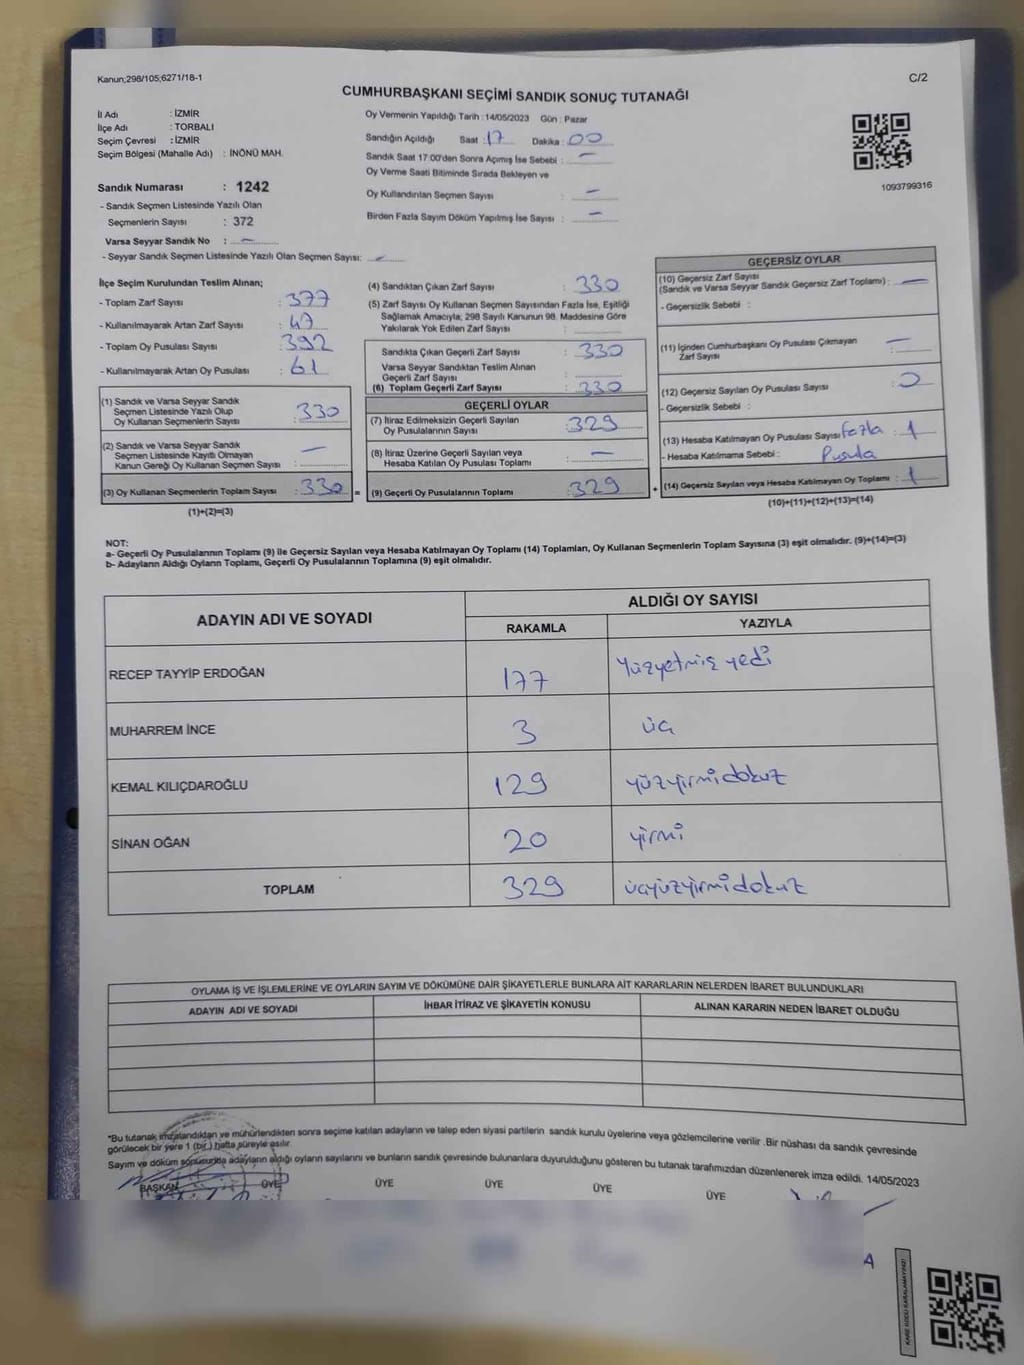 Kanun;298/105;6271/18-1
C/2
CUMHURBAŞKANI SEÇİMİ SANDIK SONUÇ TUTANAĞI
İl Adı : İZMİR
İlçe Adı : TORBALI
Seçim Çevresi : İZMİR
Seçim Bölgesi (Mahalle Adı) : İNÖNÜ MAH.
Sandık Numarası : 1242
- Sandık Seçmen Listesinde Yazılı Olan
Seçmenlerin Sayısı : 372
Varsa Seyyar Sandık No : —
- Seyyar Sandık Seçmen Listesinde Yazılı Olan Seçmen Sayısı: —
Oy Vermenin Yapıldığı Tarih : 14/05/2023 Gün : Pazar
Sandığın Açıldığı Saat : 17 Dakika : 00
Sandık Saat 17:00'den Sonra Açımış İse Sebebi : —
Oy Verme Saati Bitiminde Sırada Bekleyen ve
Oy Kullandırılan Seçmen Sayısı : —
Birden Fazla Sayım Döküm Yapılmış İse Sayısı : —
1093799316
İlçe Seçim Kurulundan Teslim Alınan;
- Toplam Zarf Sayısı : 377
- Kullanılmayarak Artan Zarf Sayısı : 47
- Toplam Oy Pusulası Sayısı : 392
- Kullanılmayarak Artan Oy Pusulası : 61
(1) Sandık ve Varsa Seyyar Sandık
Seçmen Listesinde Yazılı Olup
Oy Kullanan Seçmenlerin Sayısı : 330
(2) Sandık ve Varsa Seyyar Sandık
Seçmen Listesinde Kayıtlı Olmayan
Kanun Gereği Oy Kullanan Seçmen Sayısı : —
(3) Oy Kullanan Seçmenlerin Toplam Sayısı : 330 =
(1)+(2)=(3)
(4) Sandıktan Çıkan Zarf Sayısı : 330
(5) Zarf Sayısı Oy Kullanan Seçmen Sayısından Fazla İse, Eşitliği
Sağlamak Amacıyla; 298 Sayılı Kanunun 98. Maddesine Göre
Yakılarak Yok Edilen Zarf Sayısı :
Sandıkta Çıkan Geçerli Zarf Sayısı : 330
Varsa Seyyar Sandıktan Teslim Alınan
Geçerli Zarf Sayısı :
(6) Toplam Geçerli Zarf Sayısı : 330
GEÇERLİ OYLAR
(7) İtiraz Edilmeksizin Geçerli Sayılan
Oy Pusulalarının Sayısı : 329
(8) İtiraz Üzerine Geçerli Sayılan veya
Hesaba Katılan Oy Pusulası Toplamı : —
(9) Geçerli Oy Pusulalarının Toplamı : 329 +
GEÇERSİZ OYLAR
(10) Geçersiz Zarf Sayısı
(Sandık ve Varsa Seyyar Sandık Geçersiz Zarf Toplamı) : —
- Geçersizlik Sebebi :
(11) İçinden Cumhurbaşkanı Oy Pusulası Çıkmayan
Zarf Sayısı : —
(12) Geçersiz Sayılan Oy Pusulası Sayısı :
- Geçersizlik Sebebi :
(13) Hesaba Katılmayan Oy Pusulası Sayısı fazla : 1
- Hesaba Katılmama Sebebi : Pusula
(14) Geçersiz Sayılan veya Hesaba Katılmayan Oy Toplamı : 1
(10)+(11)+(12)+(13)=(14)
NOT:
a- Geçerli Oy Pusulalarının Toplamı (9) ile Geçersiz Sayılan veya Hesaba Katılmayan Oy Toplamı (14) Toplamları, Oy Kullanan Seçmenlerin Toplam Sayısına (3) eşit olmalıdır. (9)+(14)=(3)
b- Adayların Aldığı Oyların Toplamı, Geçerli Oy Pusulalarının Toplamına (9) eşit olmalıdır.
ADAYIN ADI VE SOYADI
ALDIĞI OY SAYISI
RAKAMLA YAZIYLA
RECEP TAYYİP ERDOĞAN 177 Yüzyetmiş yedi
MUHARREM İNCE 3 üç
KEMAL KILIÇDAROĞLU 129 yüzyirmidokuz
SİNAN OĞAN 20 yirmi
TOPLAM 329 üçyüzyirmidokuz
OYLAMA İŞ VE İŞLEMLERİNE VE OYLARIN SAYIM VE DÖKÜMÜNE DAİR ŞİKAYETLERLE BUNLARA AİT KARARLARIN NELERDEN İBARET BULUNDUKLARI
ADAYIN ADI VE SOYADI İHBAR İTİRAZ VE ŞİKAYETİN KONUSU ALINAN KARARIN NEDEN İBARET OLDUĞU
*Bu tutanak imzalandıktan ve mühürlendikten sonra seçime katılan adayların ve talep eden siyasi partilerin sandık kurulu üyelerine veya gözlemcilerine verilir .Bir nüshası da sandık çevresinde
görülecek bir yere 1 (bir ) hafta süreyle asılır.
Sayım ve döküm sonucunda adayların aldığı oyların sayılarını ve bunların sandık çevresinde bulunanlara duyurulduğunu gösteren bu tutanak tarafımızdan düzenlenerek imza edildi. 14/05/2023
BAŞKAN ÜYE ÜYE ÜYE ÜYE ÜYE
A